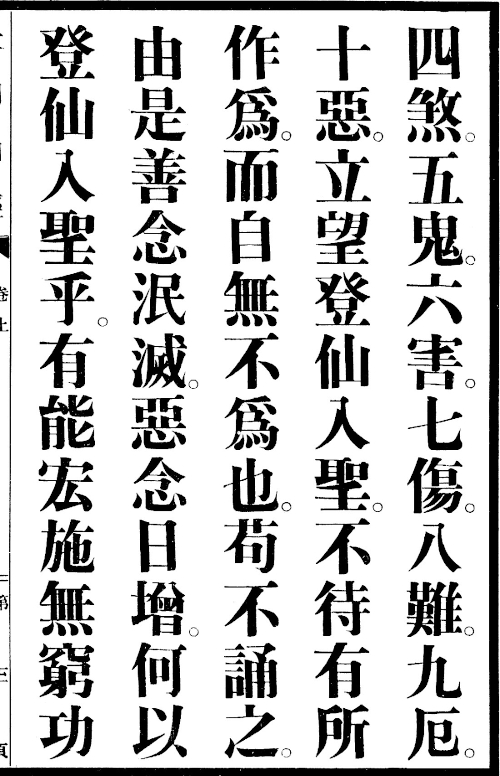 四煞。五鬼。六害。七傷。八難。九厄。
十惡。立望登仙入聖。不待有所
作爲。而自無不爲也。苟不誦之。
由是善念泯滅。惡念日增。何以
登仙入聖乎。有能宏施無窮功